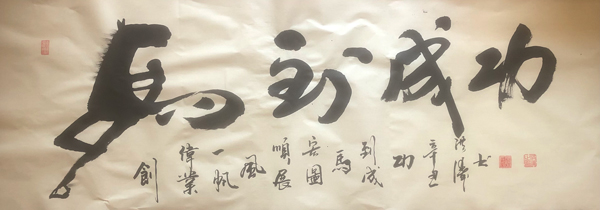 馬到成功
創
偉業
一帆
風
順展
宏圖
馬
到成
功
辛丑
洪濤
书